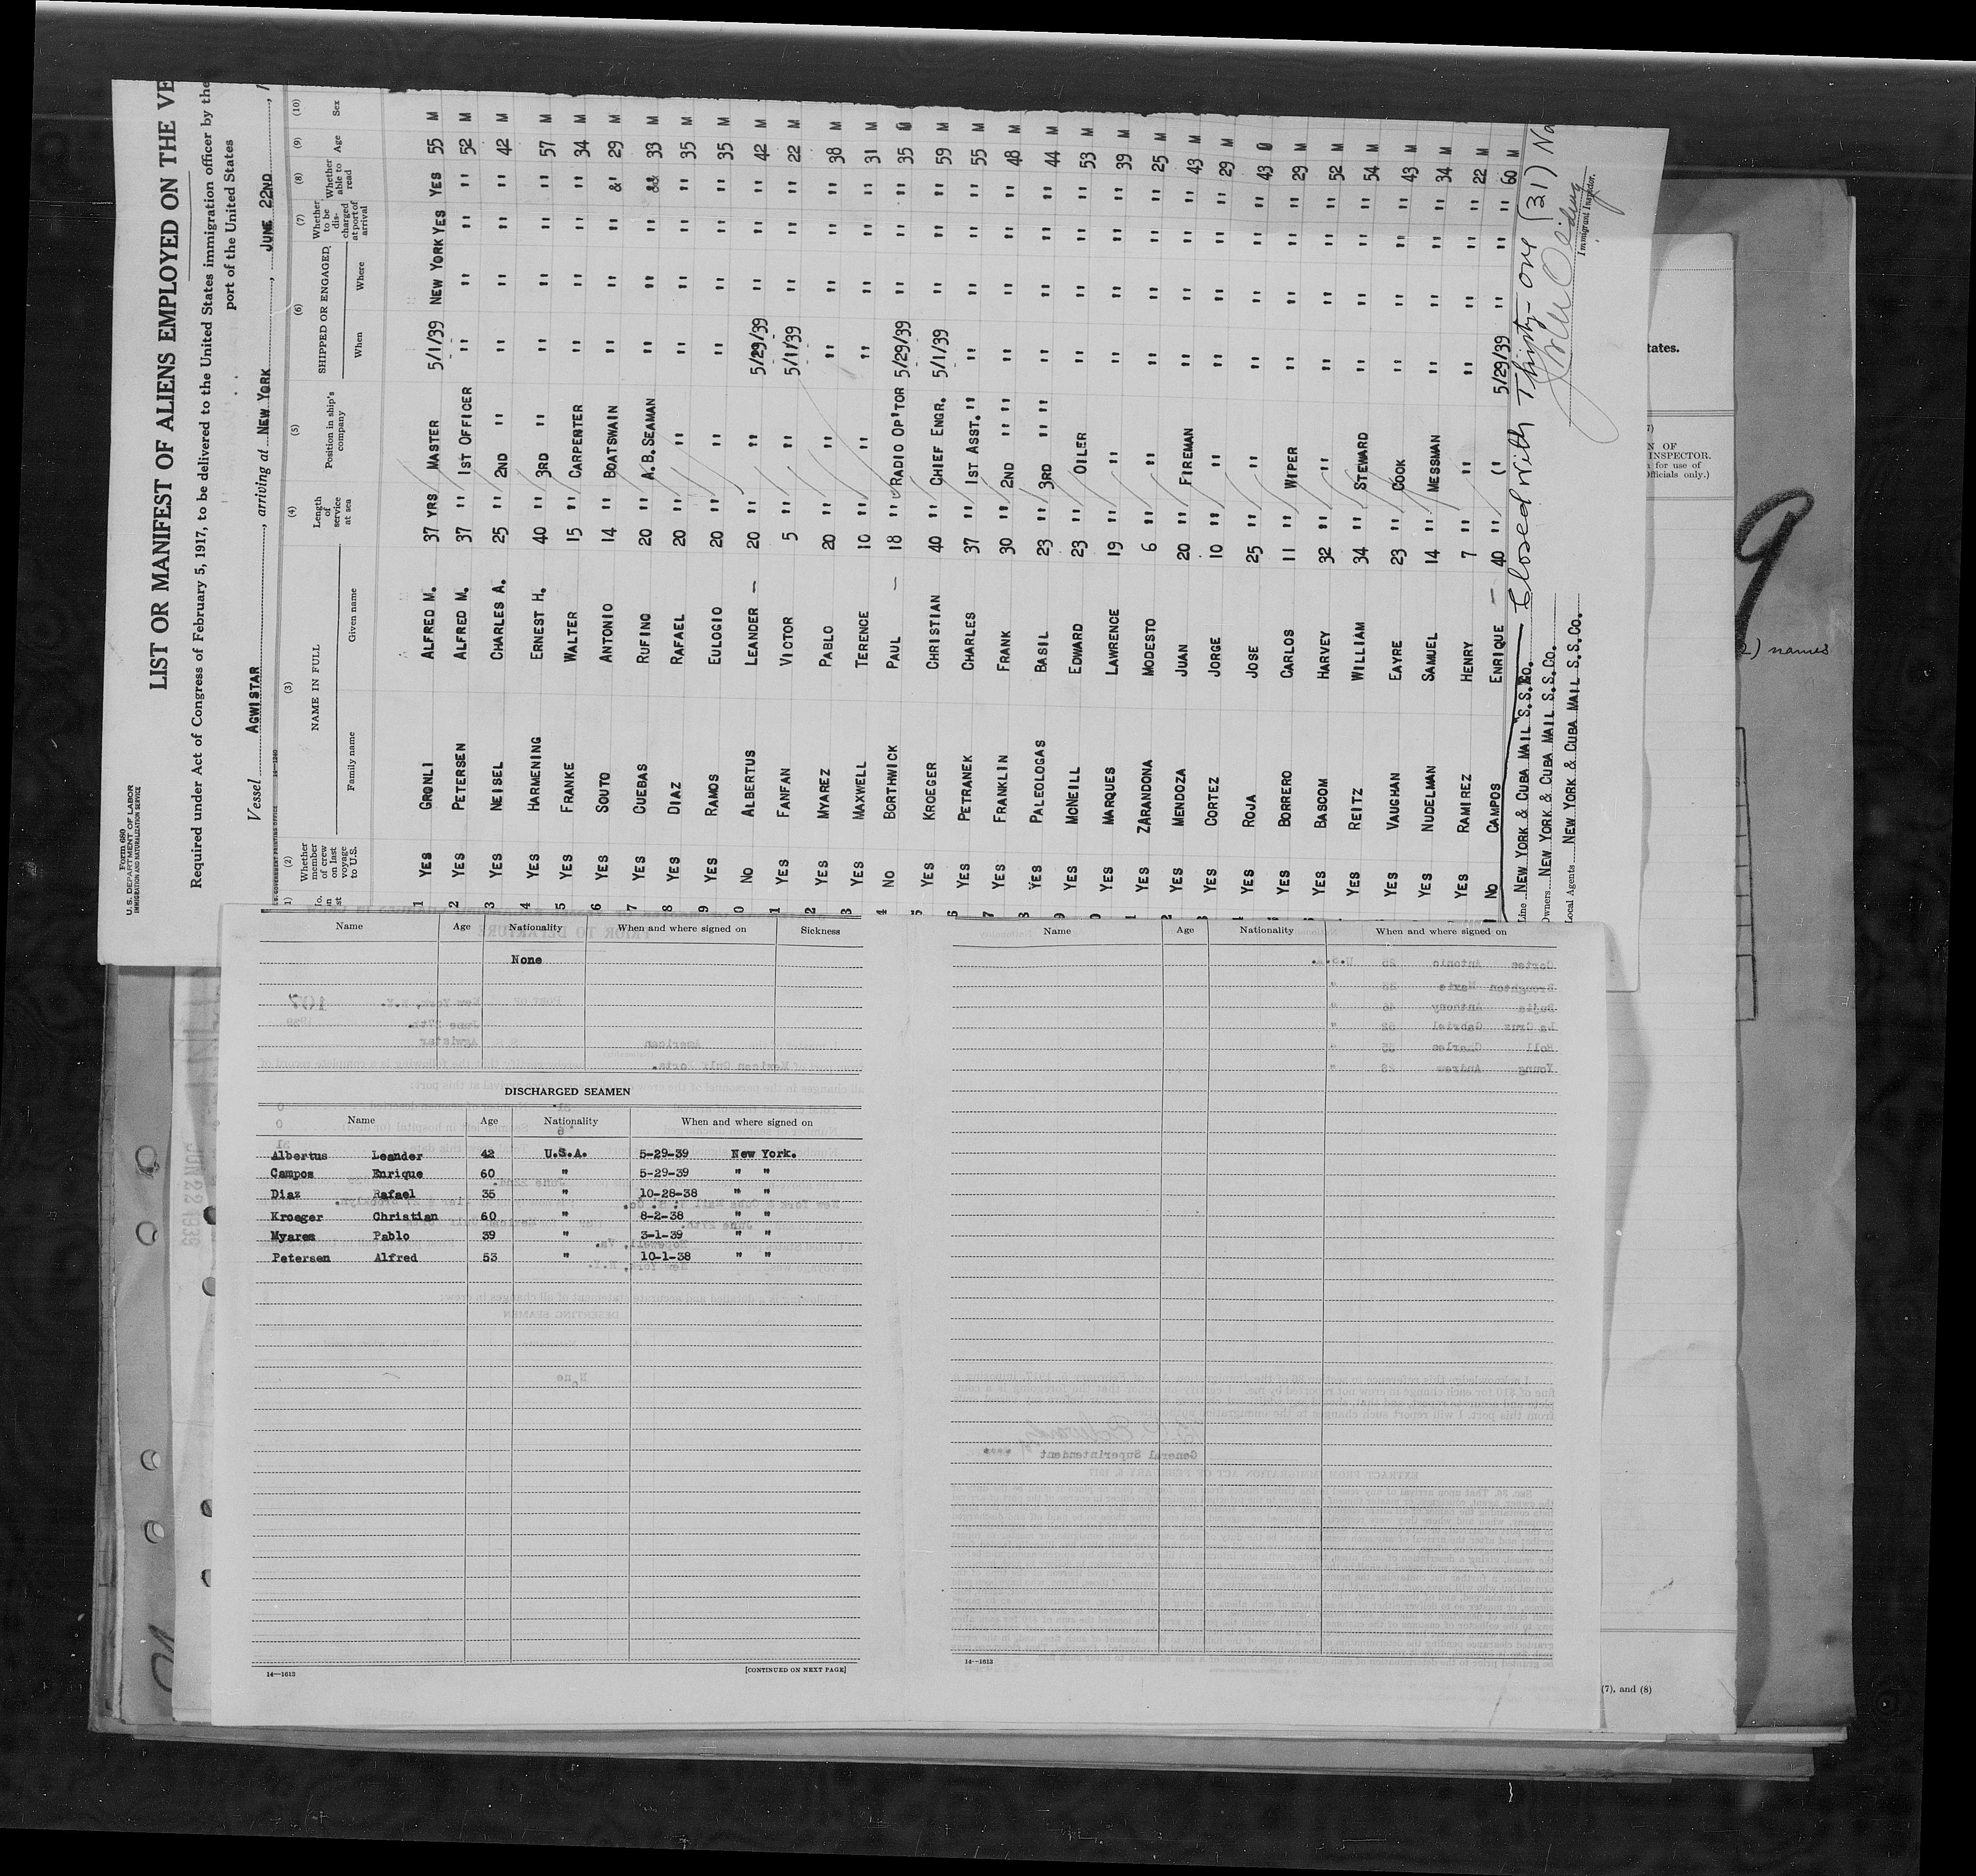 Form 680
U. S. DEPARTMENT OF LABOR
IMMIGRATION AND NATURALIZATION SERVICE
LIST OR MANIFEST OF ALIENS EMPLOYED ON THE VE
Required under Act of Congress of February 5, 1917, to be delivered to the United States immigration officer by the
port of the United States
Vessel AGWISTAR, arriving at NEW YORK, JUNE 22ND,
(2) (3) (4) (5) (6) (7) (8) (9) (10)
Whether member of crew on last voyage to U.S. NAME IN FULL Family name Given name Length of service at sea Position in ship's company SHIPPED OR ENGAGED When Where Whether to be discharged at port of arrival Whether able to read Age Sex
1 YES GRONLI ALFRED M. 37 YRS MASTER 5/1/39 NEW YORK YES YES 55 M
2 YES PETERSEN ALFRED M. 37 " 1ST OFFICER " " " " 52 M
3 YES NEISEL CHARLES A. 25 " 2ND " " " " " 42 M
4 YES HARMENING ERNEST H. 40 " 3RD " " " " " 57 M
5 YES FRANKE WALTER 15 " CARPENTER " " " " 34 M
6 YES SOUTO ANTONIO 14 " BOATSWAIN " " " &' 29 M
7 YES CUEBAS RUFINO 20 " A.B.SEAMAN " " " && 33 M
8 YES DIAZ RAFAEL 20 " " " " " " 35 M
9 YES RAMOS EULOGIO 20 " " " " " " 35 M
0 NO ALBERTUS LEANDER — 20 " " 5/29/39 " " " 42 M
1 YES FANFAN VICTOR 5 " " 5/1/39 " " " 22 M
2 YES MYAREZ PABLO 20 " " " " " " 38 M
3 YES MAXWELL TERENCE 10 " " " " " " 31 M
4 NO BORTHWICK PAUL — 18 " RADIO OP'TOR 5/29/39 " " " 35
5 YES KROEGER CHRISTIAN 40 " CHIEF ENGR. 5/1/39 " " " 59 M
6 YES PETRANEK CHARLES 37 " 1ST ASST. " " " " " 55 M
7 YES FRANKLIN FRANK 30 " 2ND " " " " " " 48 M
8 YES PALEOLOGAS BASIL 23 " 3RD " " " " " " 44 M
9 YES MCNEILL EDWARD 23 " OILER " " " " 53 M
0 YES MARQUES LAWRENCE 19 " " " " " " 39 M
1 YES ZARANDONA MODESTO 6 " " " " " " 25 M
2 YES MENDOZA JUAN 20 " FIREMAN " " " " 43 M
3 YES CORTEZ JORGE 10 " " " " " " 29 M
YES ROJA JOSE 25 " " " " " " 43
YES BORRERO CARLOS 11 " WIPER " " " " 29 M
YES BASCOM HARVEY 32 " " " " " " 52 M
YES REITZ WILLIAM 34 " STEWARD " " " " 54 M
YES VAUGHAN EAYRE 23 " COOK " " " " 43 M
YES NUDELMAN SAMUEL 14 " MESSMAN " " " " 34 M
YES RAMIREZ HENRY 7 " " " " " " 22 M
1 NO CAMPOS ENRIQUE — 40 " (" 5/29/39 " " " 60 M
Closed with Thirty-one (31) Na
Line NEW YORK & CUBA MAIL S.S.CO.
Owners NEW YORK & CUBA MAIL S.S.CO.
Local Agents NEW YORK & CUBA MAIL S.S.CO.
Immigrant Inspector.
tates.
N OF
INSPECTOR.
for use of
fficials only.)
9
2) names
Name Age Nationality When and where signed on Sickness
None
DISCHARGED SEAMEN
Name Age Nationality When and where signed on
Albertus Leander 42 U.S.A. 5-29-39 New York.
Campos Enrique 60 " 5-29-39 " "
Diaz Rafael 35 " 10-28-38 " "
Kroeger Christian 60 " 8-2-38 " "
Myares Pablo 39 " 3-1-39 " "
Petersen Alfred 53 " 10-1-38 " "
14—1613 [CONTINUED ON NEXT PAGE]
Name Age Nationality When and where signed on
Cortes Antonio 25 U.S.A.
Broughton
Bujia Anthony 46 "
La Cruz Gabriel 32 "
Holl Charles 35 "
Young Andrew 28 "
General Superintendent
EXTRACT FROM IMMIGRATION ACT OF FEBRUARY 5, 1917
14—1613
(7), and (8)
JUN 22 1939